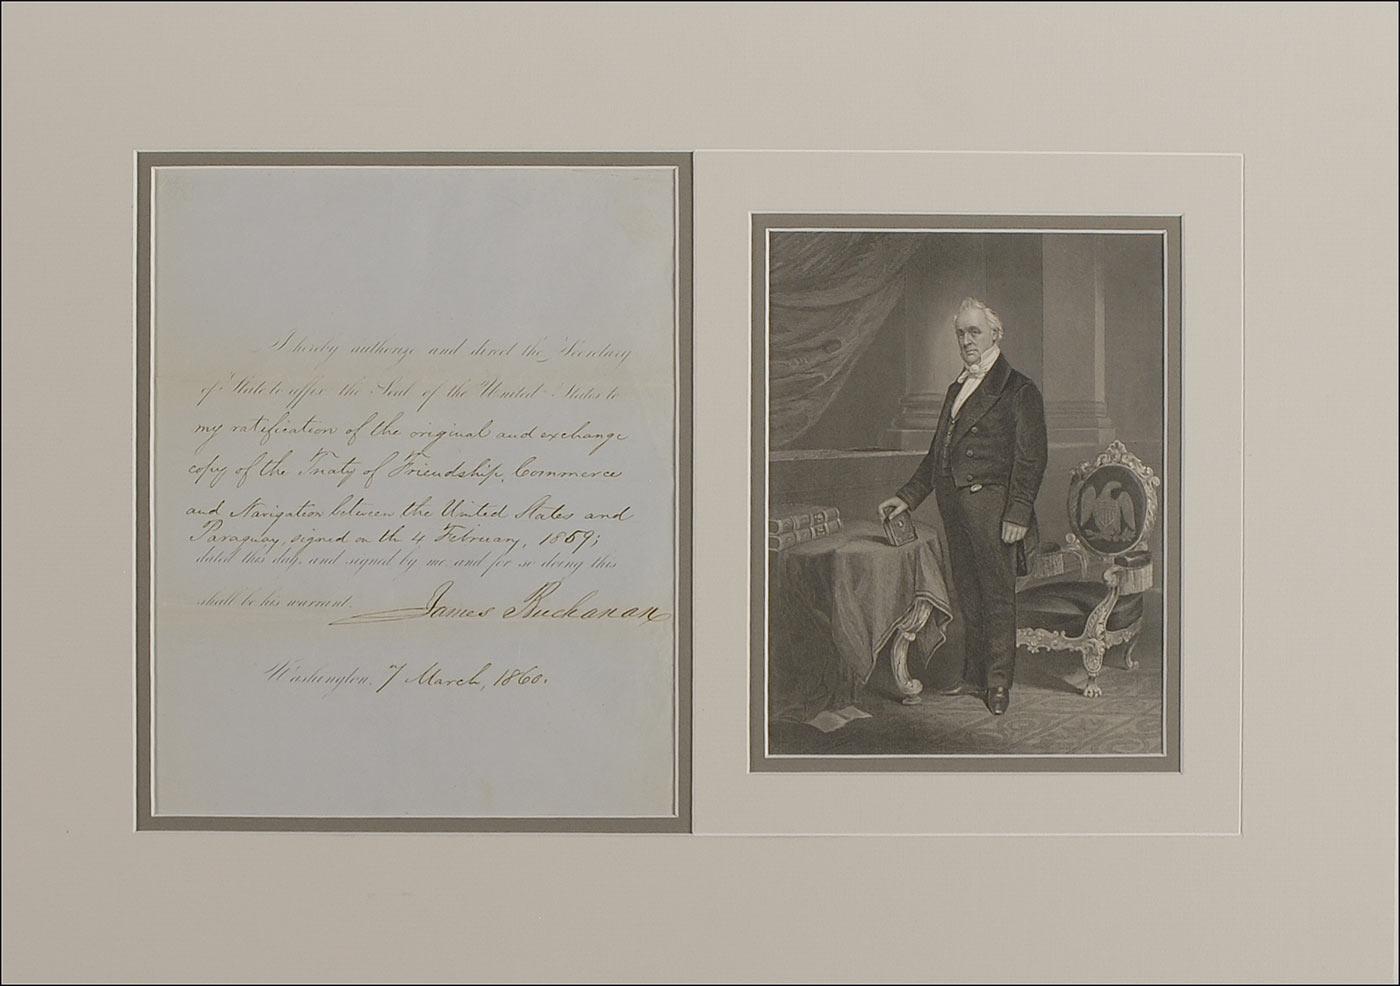 I hereby authorize and direct the Secretary
of State to affix the Seal of the United States to
my ratification of the original and exchange
copy of the Treaty of Friendship, Commerce
and Navigation between the United States and
Paraguay, signed on the 4 February, 1859;
dated this day, and signed by me and for so doing this
shall be his warrant.
James Buchanan
Washington, 7 March, 1860.